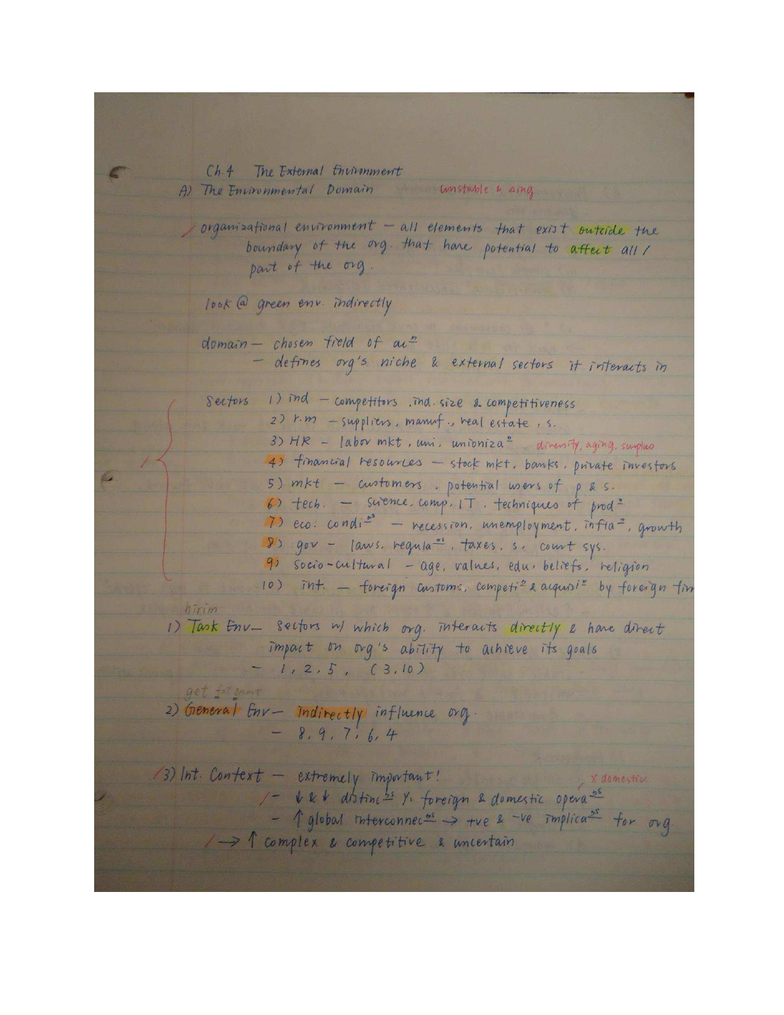 Ch.4 The External Environment
A) The Environmental Domain unstable &
organizational environment – all elements that exist outside the
boundary of the org. that have potential to affect all /
part of the org.
look @ green env. indirectly
domain – chosen field of acⁿ
– defines org's niche & external sectors it interacts in
Sectors 1) ind – competitors, ind. size & competitiveness
2) r.m – suppliers, manuf., real estate, s.
3) HR – labor mkt, uni, unionizaⁿ diversity, aging, surplus
4) financial resources – stock mkt, banks, private investors
5) mkt – customers, potential users of p & s.
6) tech. – science, comp, IT, techniques of prodⁿ
7) eco. condiⁿˢ – recession, unemployment, inflaⁿ, growth
8) gov – laws, regulaⁿˢ, taxes, s, court sys.
9) socio-cultural – age, values, edu, beliefs, religion
10) int. – foreign customs, competiⁿ & acquisiⁿ by foreign firm
hirim
1) Task Env – sectors w/ which org. interacts directly & have direct
impact on org's ability to achieve its goals
– 1, 2, 5, (3, 10)
get
2) General Env – indirectly influence org.
– 8, 9, 7, 6, 4
3) Int. Context – extremely important! x domestic
– ↓ & ↓ distincⁿˢ foreign & domestic operaⁿˢ
– ↑ global interconnecⁿˢ → +ve & -ve implicaⁿˢ for org
→ ↑ complex & competitive & uncertain